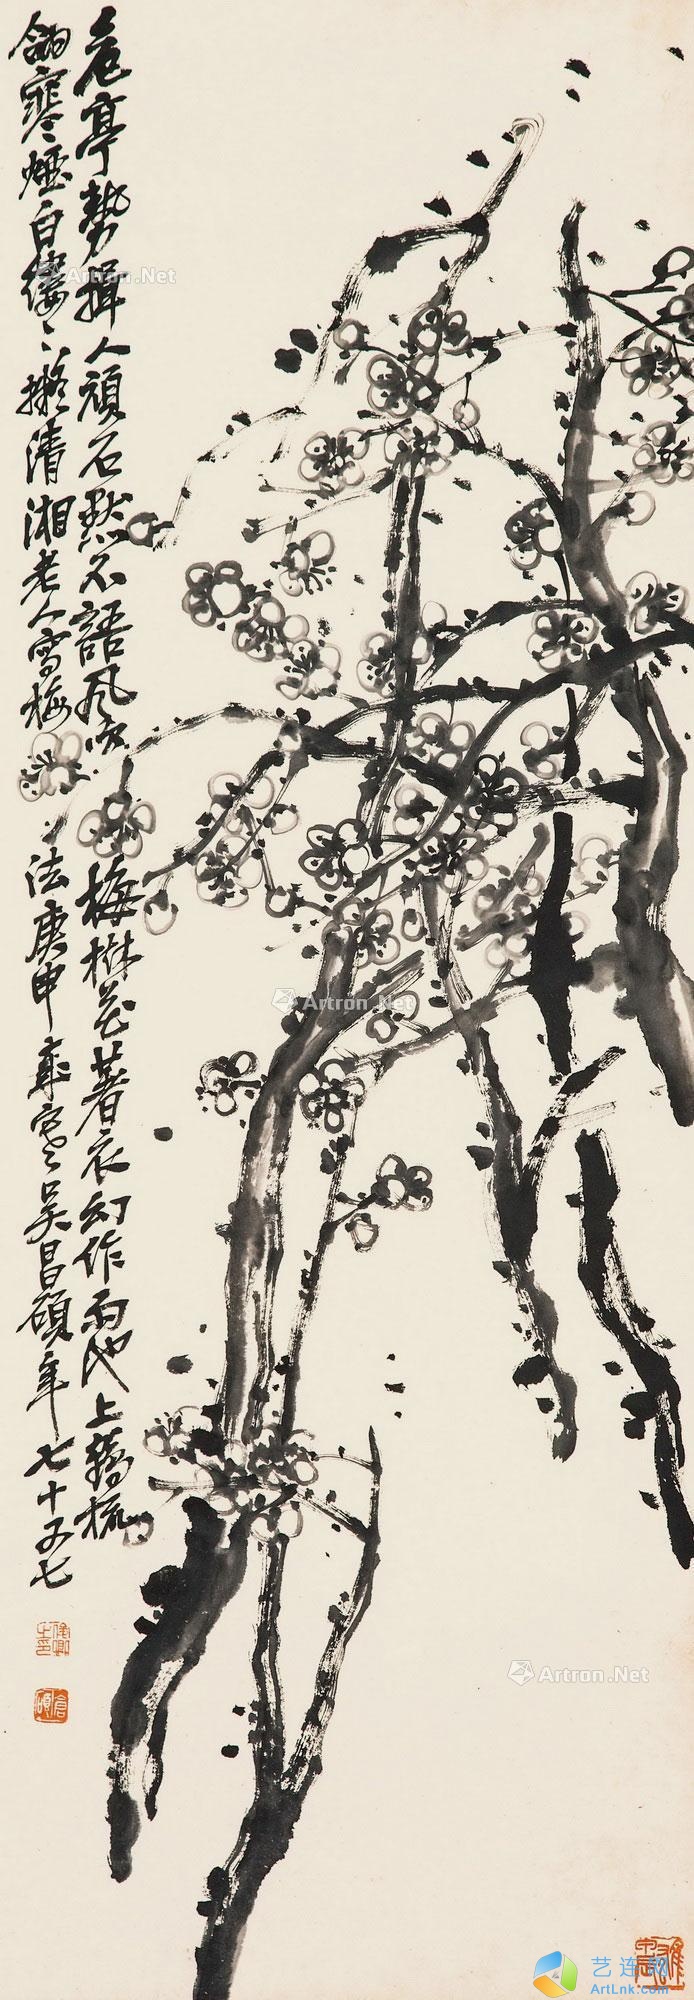 危亭势揖人顽石默不語风吹梅樹花著衣幻作雨池上鶴梳
翎寒烟白缕々擬清湘老人雪梅
法庚申寒吴昌硕年七十又七
Artron.Net
Artron.Net
Artron.Net
艺连网
ArtLnk.com